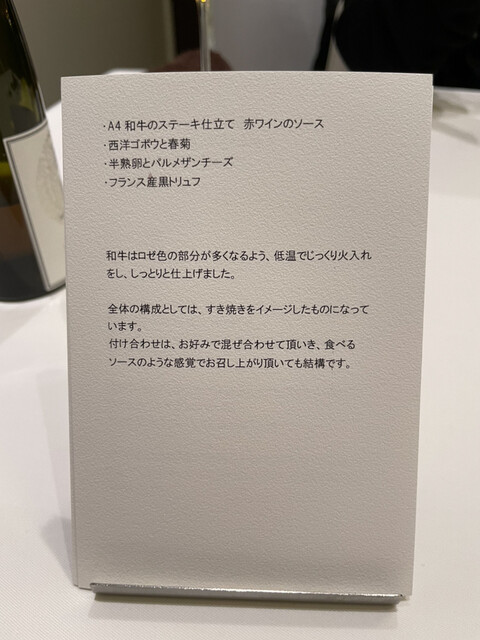 ・A4 和牛のステーキ仕立て　赤ワインのソース
・西洋ゴボウと春菊
・半熟卵とパルメザンチーズ
・フランス産黒トリュフ
和牛はロゼ色の部分が多くなるよう、低温でじっくり火入れ
をし、しっとりと仕上げました。
全体の構成としては、すき焼きをイメージしたものになって
います。
付け合わせは、お好みで混ぜ合わせて頂いき、食べる
ソースのような感覚でお召し上がり頂いても結構です。